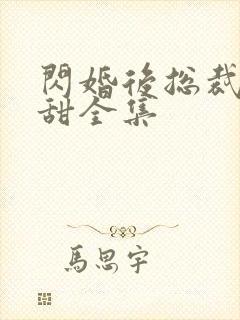 閃婚後総裁
甜全集
馬思宇